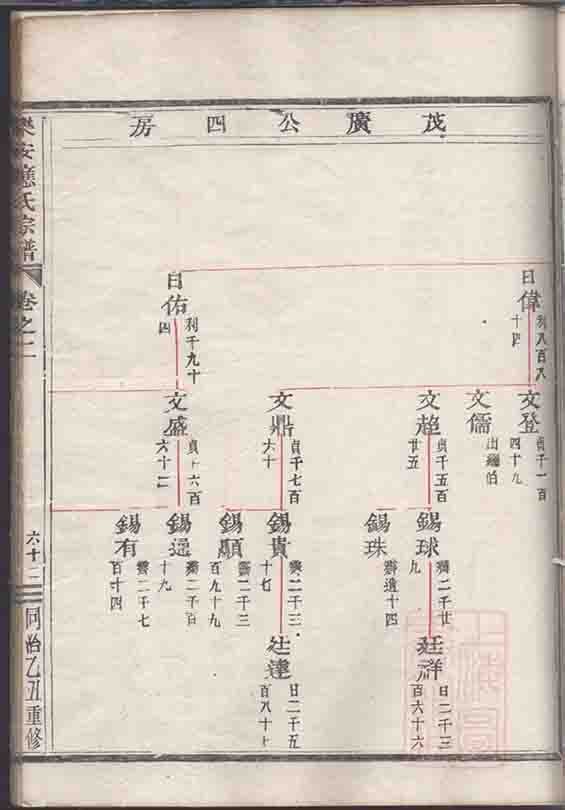 茂廣公四房
日偉
利八百八十四
日佑
利千九十四
文登
貞千一百四十九
文儒
出繼伯
文趙
貞千五百廿五
文鼎
貞千七百六十
文盛
貞千六百六十二
錫球
二千廿九
錫珠
殤遺十四
錫貴
二千三十七
錫顯
二千三百九十九
錫通
二千百十九
錫有
二千七百十四
廷祥
日二千三百六十六
廷達
日二千五百八十七
樂安蔣氏宗譜
卷之二
六十二
同治乙丑重修